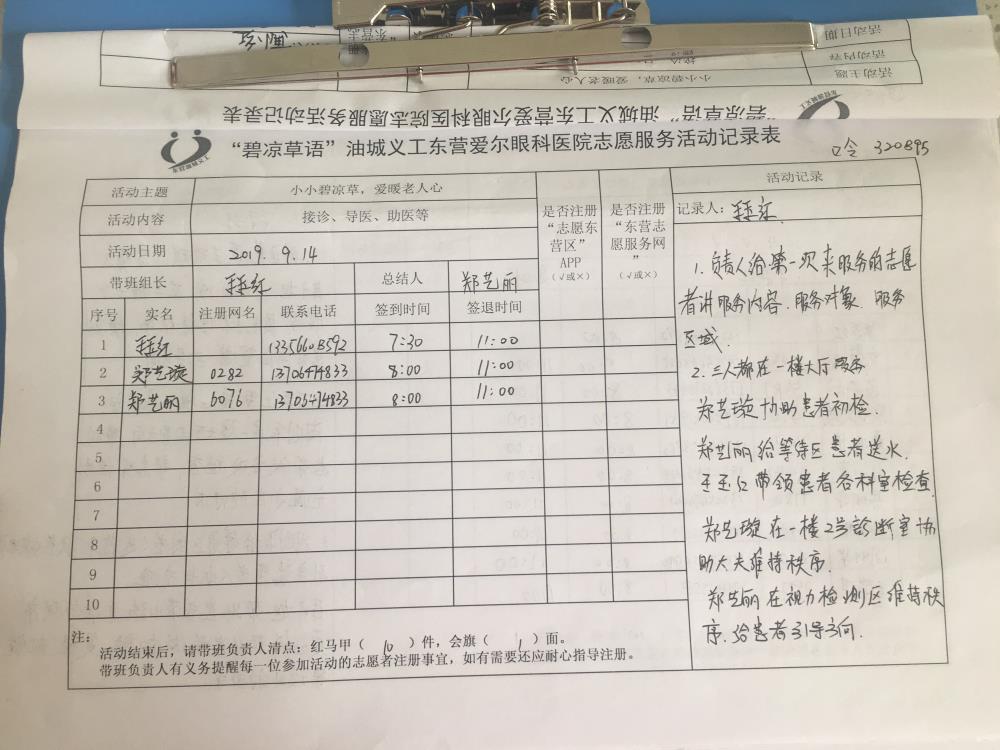 “碧凉草语”油城义工东营爱尔眼科医院志愿服务活动记录表
口令 320895
活动主题 小小碧凉草，爱暖老人心
活动内容 接诊、导医、助医等
活动日期 2019.9.14
带班组长 王玉红 总结人 郑艺丽
是否注册“志愿东营区”APP（√或×）
是否注册“东营志愿服务网”（√或×）
序号 实名 注册网名 联系电话 签到时间 签退时间
1 王玉红 7:30 11:00
2 郑艺璇 0282 13706474833 8:00 11:00
3 郑艺丽 6076 13706474833 8:00 11:00
4
5
6
7
8
9
10
活动记录
记录人：王玉红
1. 负责人给第一次来服务的志愿
者讲服务内容．服务对象 服务
区域．
2. 三人都在一楼大厅服务
郑艺璇协助患者初检．
郑艺丽给等待区患者送水．
王玉红带领患者各科室检查
郑艺璇在一楼2号診断室协
助大夫维持秩序．
郑艺丽在视力检测区维持秩
序．给患者引导方向．
注：
活动结束后，请带班负责人清点：红马甲（ 10 ）件，会旗（ 1 ）面。
带班负责人有义务提醒每一位参加活动的志愿者注册事宜，如有需要还应耐心指导注册。